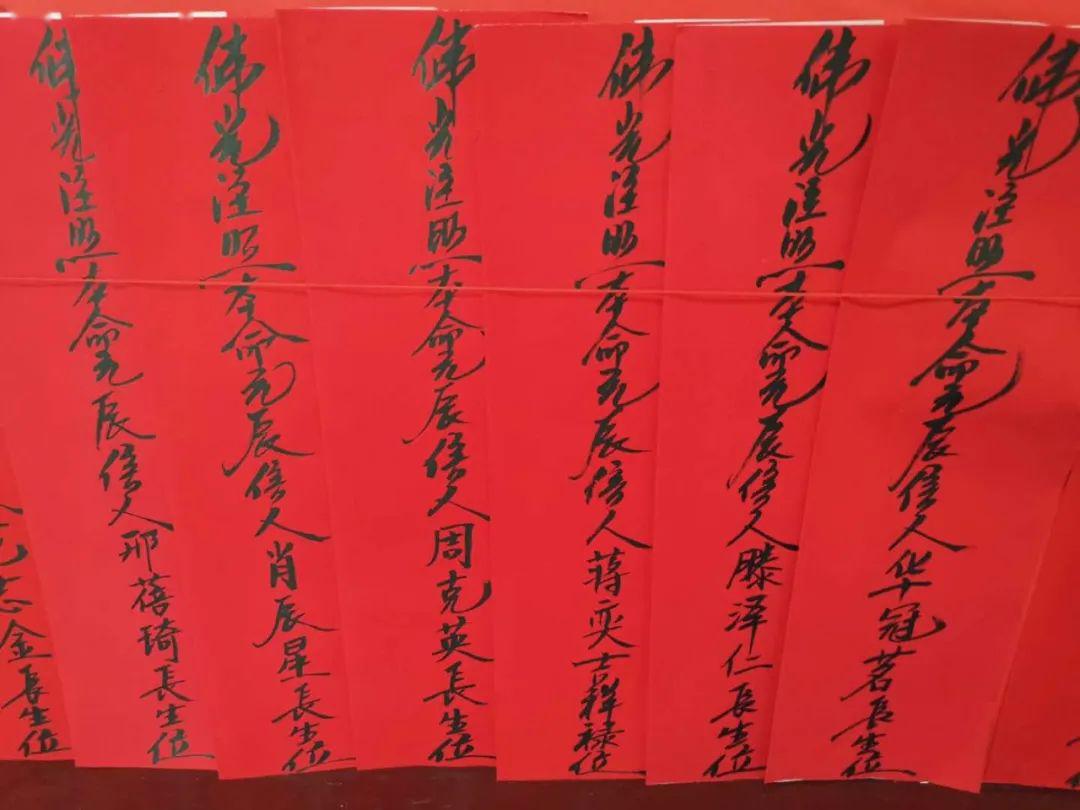 佛光注照本命元辰信人华冠茗長生位
佛光注照本命元辰信人滕泽仁長生位
佛光注照本命元辰信人蒋奕吉祥禄位
佛光注照本命元辰信人周克英長生位
佛光注照本命元辰信人肖辰星長生位
佛光注照本命元辰信人邢蓓琦長生位
志金長生位